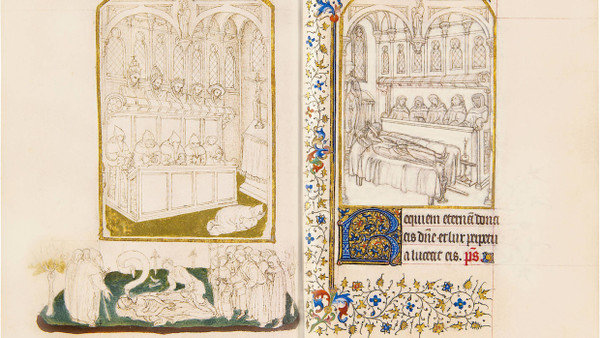 Requiem eternā dona
eis dn̄e et lux perpetu
a luceat eis. p̄s